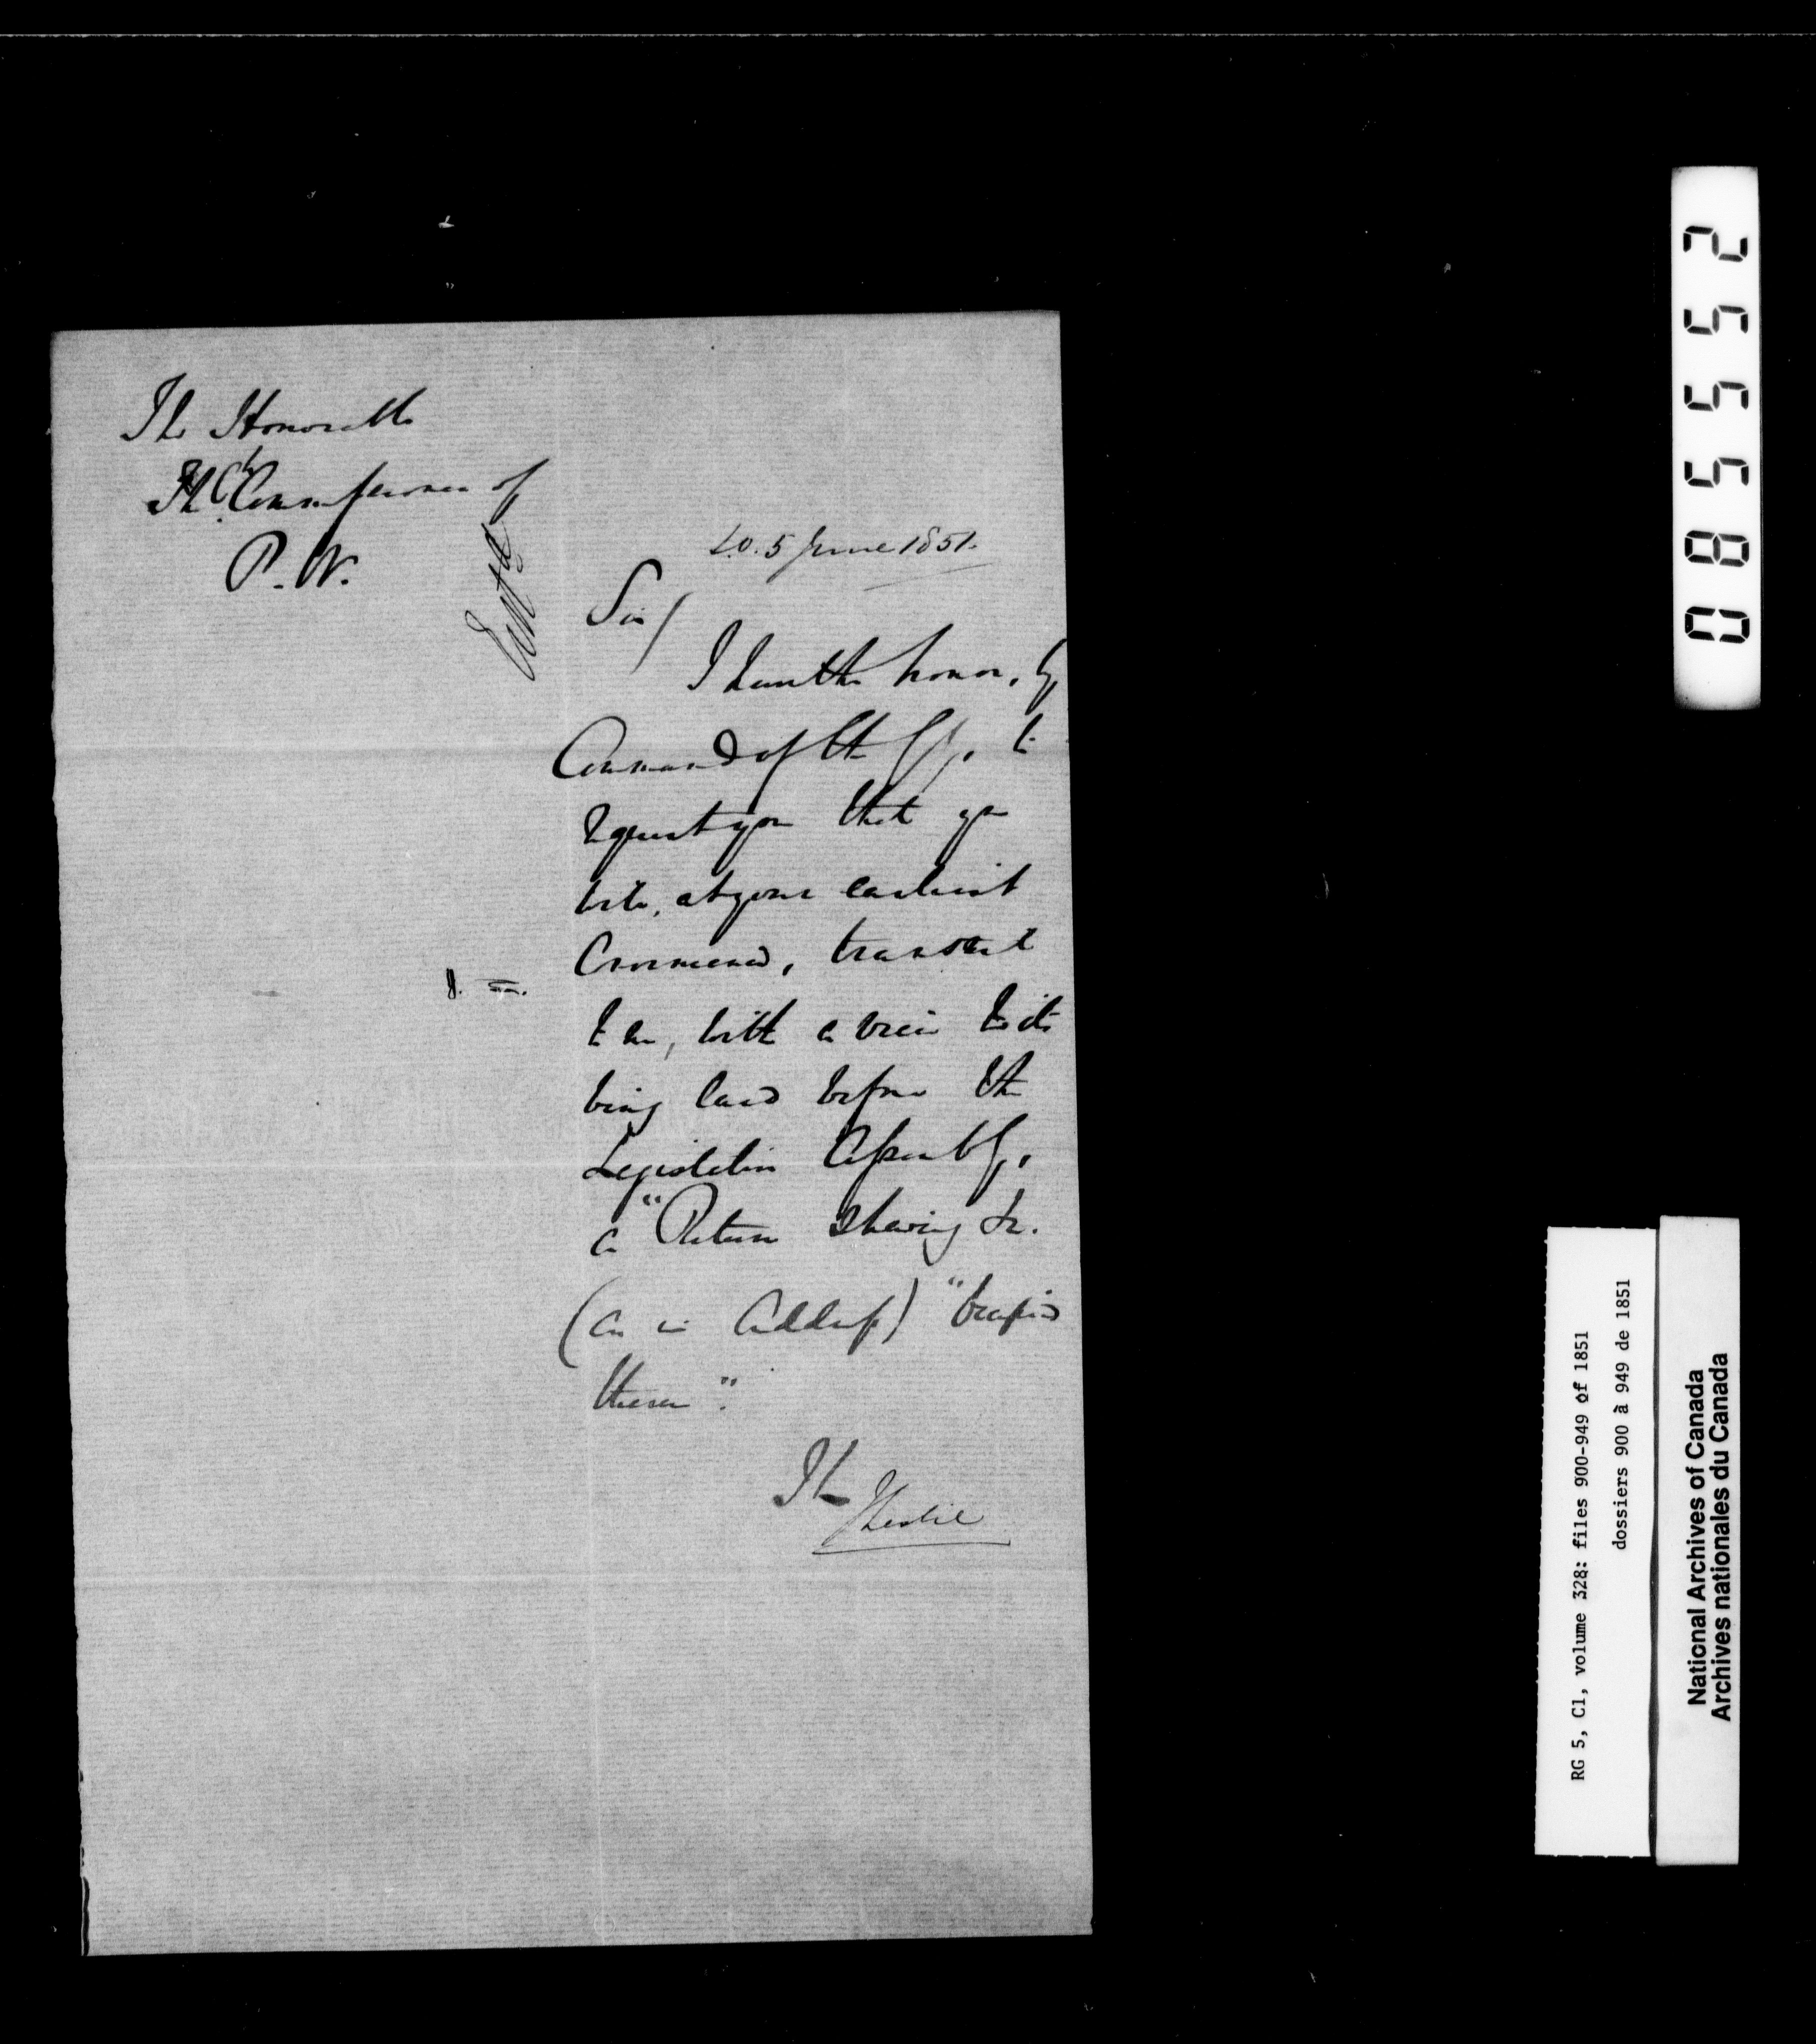 The Honorable
The Ch Commissioner of
P. W.
Entd
S.O. 5 June 1851.
Sir/
I have the honor, by
Command of the GG, to
request you that you
will, at your earliest
Convenience, transmit
to me, with a view to its
being laid before the
Legislative Assembly,
a "Return Shewing &c.
(as in Address) "
thereon".
I h
J Leslie
085552
RG 5, C1, volume 328: files 900-949 of 1851
dossiers 900 à 949 de 1851
National Archives of Canada
Archives nationales du Canada